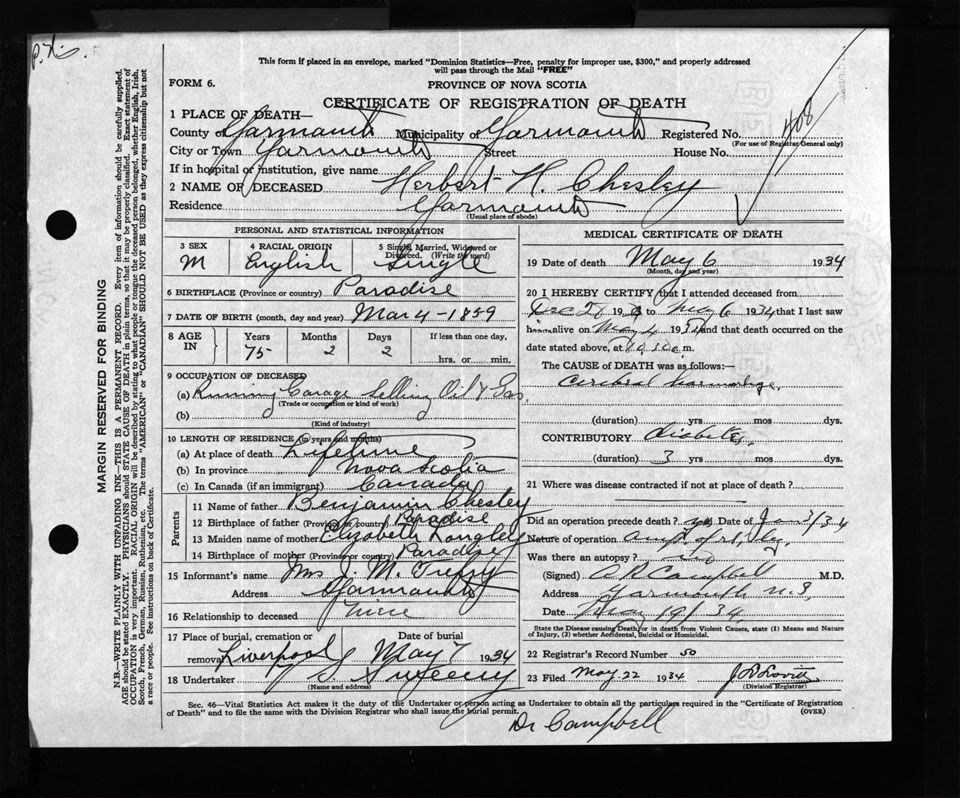 This form if placed in an envelope, marked "Dominion Statistics—Free, penalty for improper use, $300," and properly addressed
will pass through the Mail "FREE"
FORM 6.
PROVINCE OF NOVA SCOTIA
CERTIFICATE OF REGISTRATION OF DEATH
408
1 PLACE OF DEATH—
County of Yarmouth Municipality of Yarmouth Registered No.
(For use of Registrar General only)
City or Town Yarmouth Street House No.
If in hospital or institution, give name
2 NAME OF DECEASED Herbert H. Chesley
Residence Yarmouth
(Usual place of abode)
PERSONAL AND STATISTICAL INFORMATION
3 SEX 4 RACIAL ORIGIN 5 Single, Married, Widowed or Divorced. (Write the word)
M English Single
6 BIRTHPLACE (Province or country) Paradise
7 DATE OF BIRTH (month, day and year) Mar 4 - 1859
8 AGE IN Years Months Days If less than one day,
75 2 2 hrs. or min.
9 OCCUPATION OF DECEASED
(a) Running Garage Selling Oil & Gas.
(Trade or occupation or kind of work)
(b)
(Kind of industry)
10 LENGTH OF RESIDENCE (in years and months)
(a) At place of death Lifetime
(b) In province Nova Scotia
(c) In Canada (if an immigrant) Canada
Parents
11 Name of father Benjamin Chesley
12 Birthplace of father (Province or country) Paradise
13 Maiden name of mother Elizabeth Longley
14 Birthplace of mother (Province or country) Paradise
15 Informant's name Mrs J. M. Trefry
Address Yarmouth
16 Relationship to deceased niece
17 Place of burial, cremation or removal Liverpool Date of burial May 7 1934
18 Undertaker V. S. Sweeny
(Name and address)
MEDICAL CERTIFICATE OF DEATH
19 Date of death May 6 1934
(Month, day and year)
20 I HEREBY CERTIFY that I attended deceased from
Dec 28 19 to May 6 1934 that I last saw
him alive on May 4 1934 and that death occurred on the
date stated above, at 10.30 m.
The CAUSE of DEATH was as follows:—
Cerebral
(duration) yrs mos dys.
CONTRIBUTORY diabetes
(duration) 3 yrs mos dys.
21 Where was disease contracted if not at place of death?
Did an operation precede death? yes Date of Jan 3/34
Nature of operation amp. of rt. leg.
Was there an autopsy? no
(Signed) A R Campbell M.D.
Address Yarmouth N.S.
Date May 19/34
State the Disease causing Death, or in death from Violent Causes, state (1) Means and Nature of Injury, (2) whether Accidental, Suicidal or Homicidal.
22 Registrar's Record Number 50
23 Filed May 22 1934
(Division Registrar)
Sec. 46—Vital Statistics Act makes it the duty of the Undertaker or person acting as Undertaker to obtain all the particulars required in the "Certificate of Registration
of Death" and to file the same with the Division Registrar who shall issue the burial permit. (OVER)
Dr Campbell
MARGIN RESERVED FOR BINDING
N.B.—WRITE PLAINLY WITH UNFADING INK—THIS IS A PERMANENT RECORD. Every item of information should be carefully supplied.
AGE should be stated EXACTLY. PHYSICIANS should STATE CAUSE OF DEATH in plain terms, so that it may be properly classified. Exact statement of
OCCUPATION is very important. RACIAL ORIGIN will be described by stating to what people or tongue the deceased person belonged, whether English, Irish,
Scotch, French, German, Russian, Ruthenian, etc. The terms "AMERICAN" or "CANADIAN" SHOULD NOT BE USED as they express citizenship but not
a race or people. See instructions on back of Certificate.